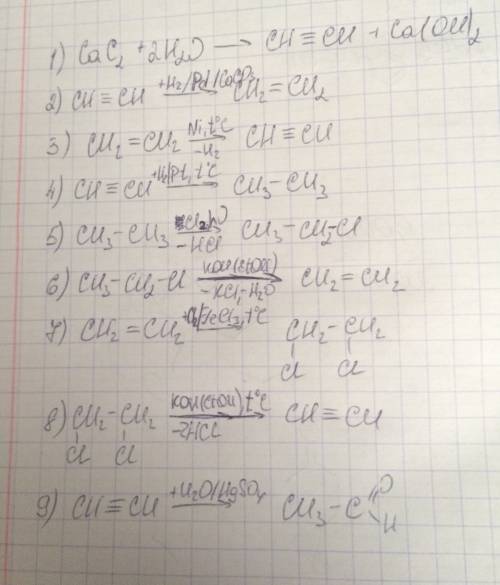 1) CaC₂ + 2H₂O → CH≡CH + Ca(OH)₂
2) CH≡CH +H₂/Pd/CaCO₃ → CH₂=CH₂
3) CH₂=CH₂ Ni, t°C → -H₂ CH≡CH
4) CH≡CH +H₂/Pt, t°C → CH₃-CH₃
5) CH₃-CH₃ Cl₂, hν → -HCl CH₃-CH₂-Cl
6) CH₃-CH₂-Cl → -KCl, -H₂O CH₂=CH₂
7) CH₂=CH₂ +Cl₂/FeCl₃, t°C → CH₂-CH₂
Cl Cl
8) CH₂-CH₂ t°C → -2HCl CH≡CH
Cl Cl
9) CH≡CH +H₂O/HgSO₄ → CH₃-C=O
H